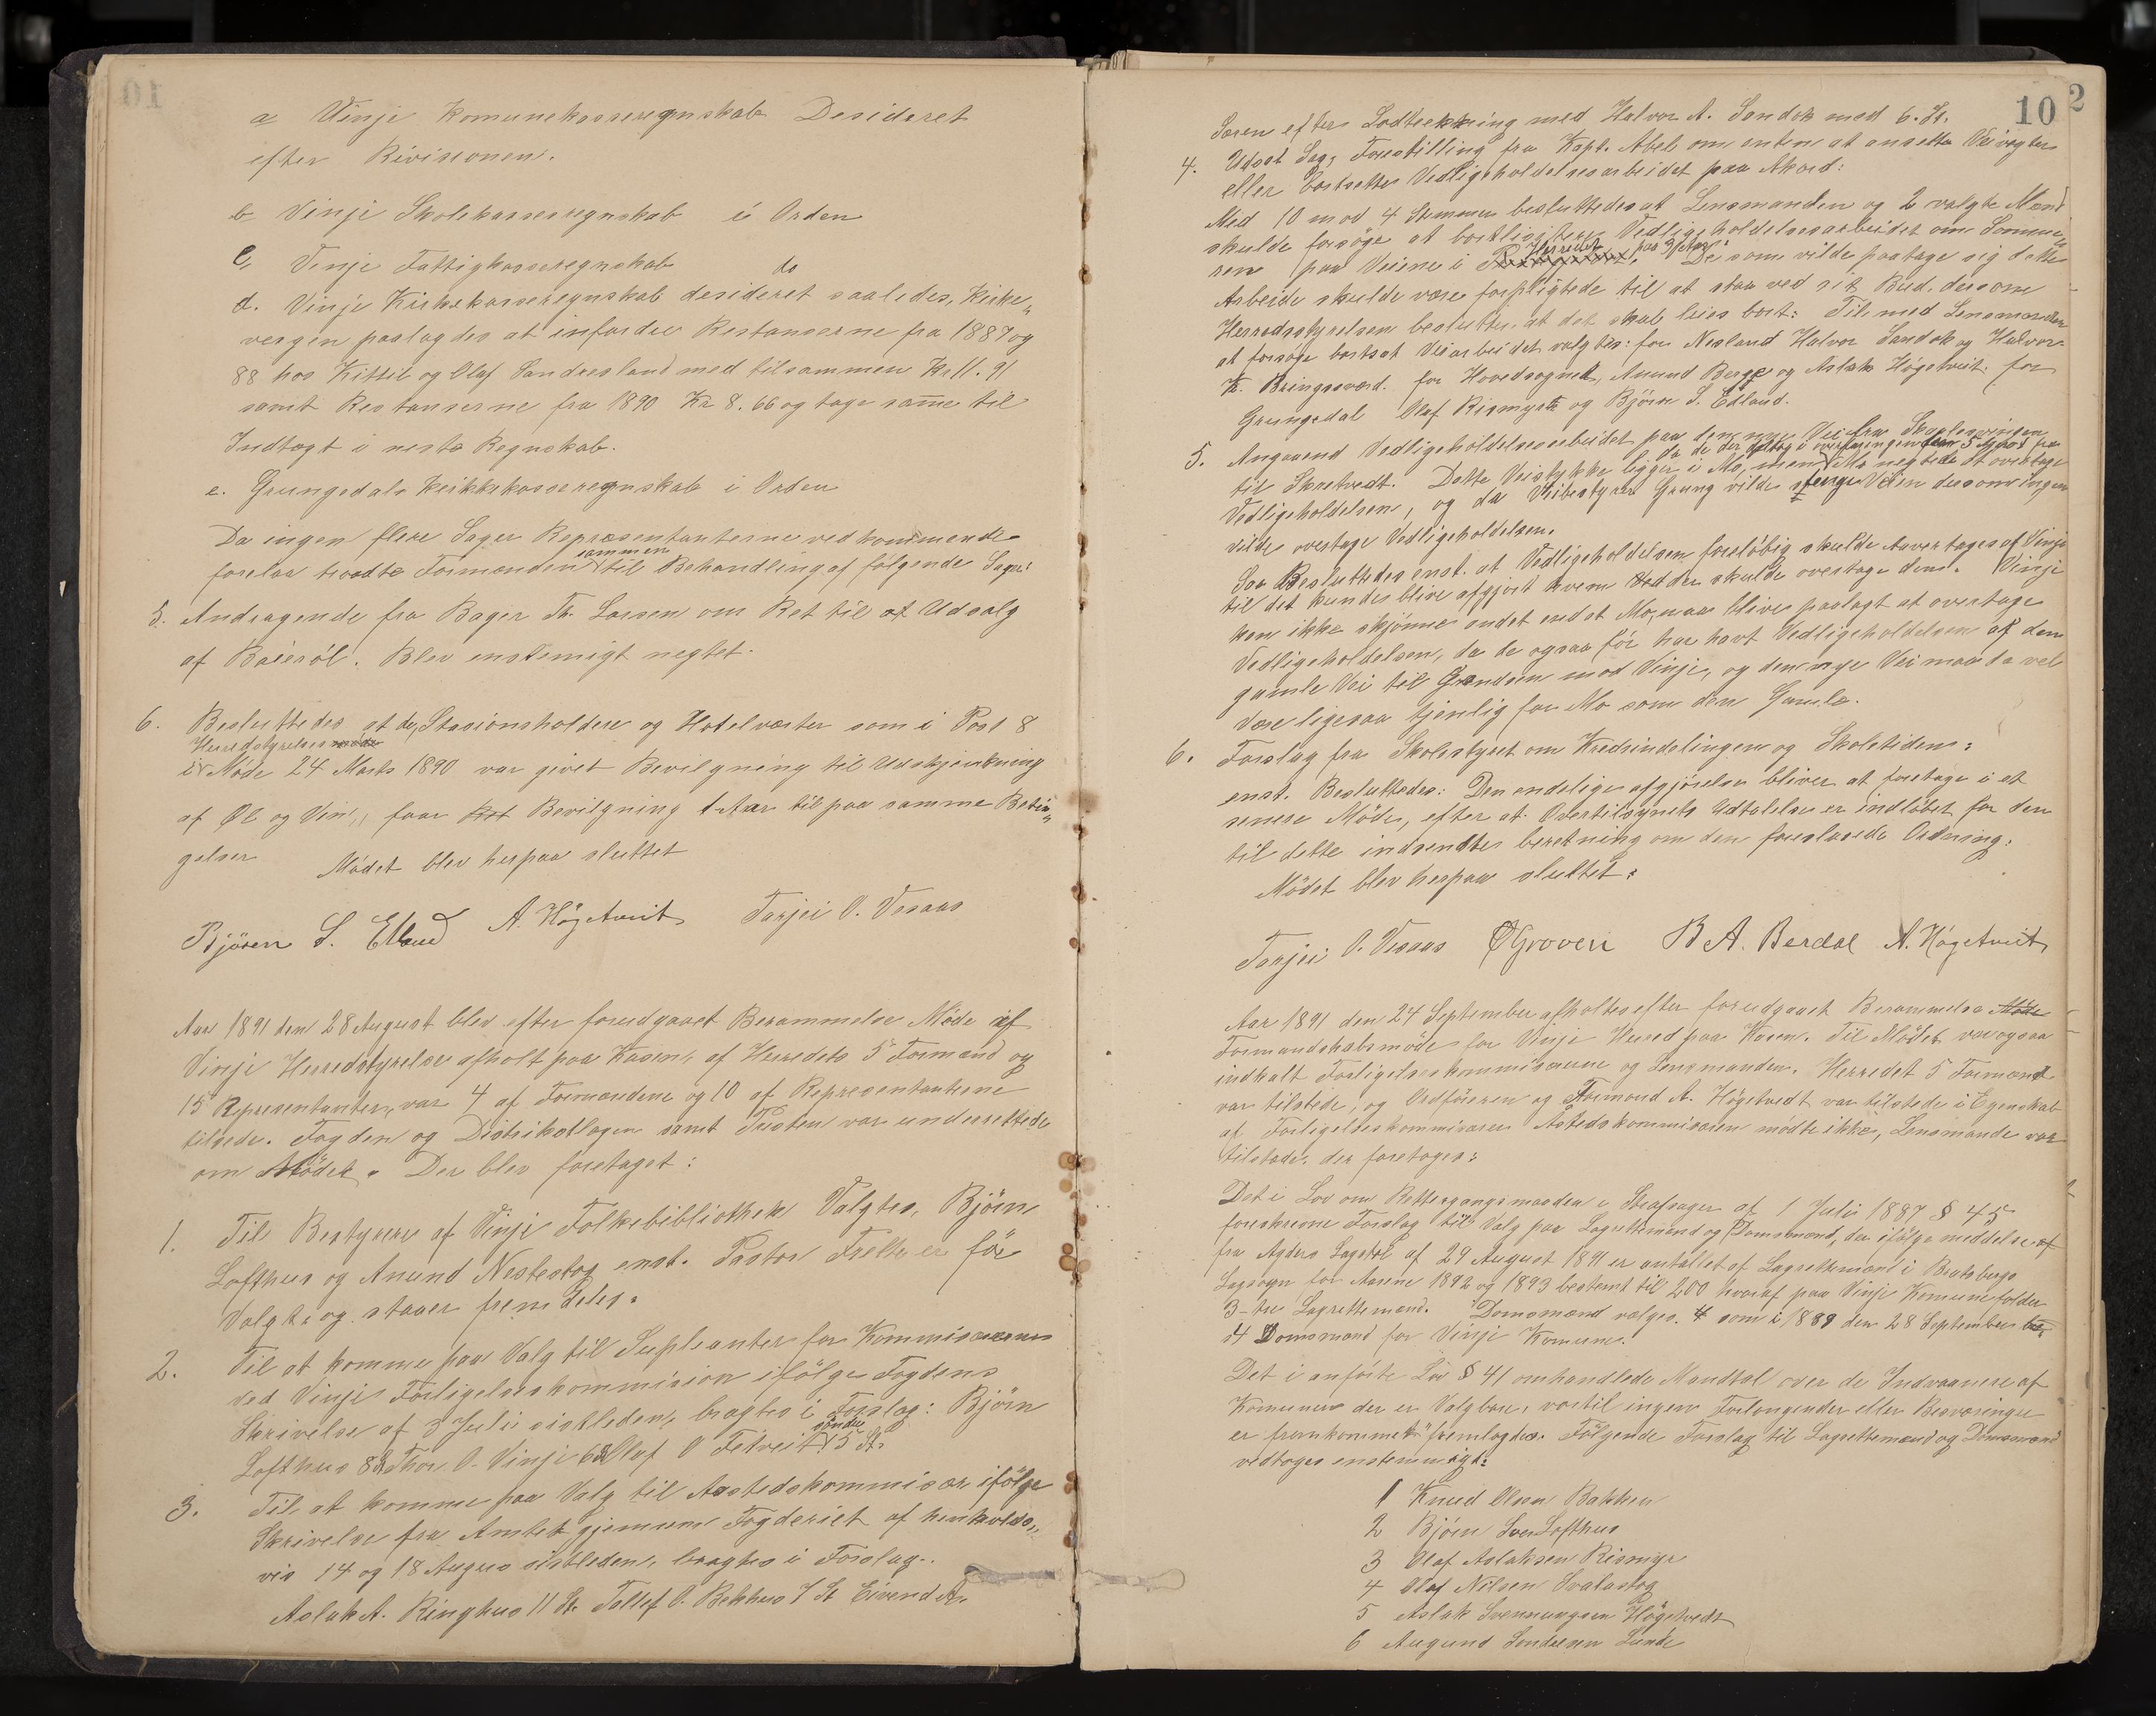 a Vinje Komunekasseregnskab Desideret
efter Rivisionen.
b Vinje Skolekasseregnskab i Orden
c, Vinje Fattigkasseregnskab do
d. Vinje Kirkekasseregnskab desideret saaledes, Kirke„
vergen paalagdes at infordre Restanserne fra 1887 og
88 hos Kittil og Olaf Sandresland med tilsammen Kr 11.91
samt Restanserne fra 1890 Kr 8.66 og tage same til
Indtægt i neste Regnskab.
e. Grungedals Keikkekasseregnskab i Orden
Da ingen flere Sager Repræsentanterne vedkommende
forelaa traadte Formænden sammen til Behandling af følgende Sager:
5. Andragende fra Bager Th. Larsen om Ret til at Udsalg
af Baierøl. Blev enstemigt negtet.
6. Besluttedes at de, Stasionsholdere og Hotelværter som i Post 8
i Herredstyrelses Møde 24 Marts 1890 var givet Bevilgning til Udskjænkning
af Øl og Vin, faar Bevilgning 1 Aar til paa samme Betin„
gelser
Mødet blev herpaa sluttet
Bjøren S. Edland A. Høgetveit Tarjei O. Vesaas
Aar 1891 den 28 August blev efter forudgaaet Berammelse Møde af
Vinje Herredstyrelse afholt paa Kasen, af Herredets 5 Formænd og
15 Representanter, var 4 af Formændene og 10 af Representanterne
tilstede. Fogden og Distriktlægen samt Presten var underrettede
om Mødet. Der blev foretaget:
1. Til Bestyrere af Vinje Folkebibliothek Valgtes, Bjørn
Lofthus og Anund Nestestog enst. Pastor Feltrer er før
Valgt og staaer fremdeles.
2. Til at komme paa Valg til Supleanter for Kommisærerne
ved Vinje Forligelseskommision ifølge Fogdens
Skrivelse af 3 Juli sistleden, bragtes i Forslag: Bjørn
Lofthus 8 St Thor O. Vinje 6 St Olaf O Felveit søndre 5 St.
3. Til at komme paa Valg til Aastedskommisær ifølge
Skrivelse fra Amtet gjennem Fogderiet af henholds„
vis 14 og 18 Augus sistleden, bragtes i Forslag:
Aslak A. Ringhus 11 St. Tallef O. Bekhus 7 St Eivend A.
10 2
Soren efter Lodtrekking med Halvor A. Sandok med 6. St.
4. Udsat Sag, Forestilling fra Kapt. Abel om enten at ansette Veivogter
eller bortsette Vedligeholdelsesarbeidet paa Akord:
Med 10 mod 4 Stemmer besluttedes at Lensmanden og 2 valgte Mænd
skulde forsøge at bortlisitere Vedligeholdelsesarbeidet om Somme„
ren paa Veiene i Herredet paa 3 Aar. De som vilde paatage sig dette
Arbeide skulde være forpligtede til at staa ved sit Bud, dersom
Herredsstyrelsen beslutter at det skal leies bort: Til med Lensmanden
at forsøge bortsat Veiarbeidet valgtes: for Nesland Halvor Sandok og Halvor
K. Bringsværd. for Hovedsognet, Anund Berge og Aslak Høgetveit. for
Grungedal Olaf Rismyr og Bjørn S. Edland.
5. Angaaend Vedligeholdelsesarbeidet paa den nye Vei fra
til Skretvedt. Dette Veistykke ligger i Mo, men Mo negtede at overtage
Vedligeholdelsen, og da Veibestyrer Grung vilde stenge Veien dersom ingen
vilde overtage Vedligeholdelsen.
Saa Besluttedes enst. at Vedligeholdelsen foreløbig skulde overtages af Vinje
til det kundes blive afgjort hvem der skulde overtage dend. Vinje
kan ikke skjønne andet end at Mo, maa blive paalagt at overtage
Vedligeholdelsen, da de ogsaa før har havt Vedligeholdelsen af den
gamle Vei til Grændsen mod Vinje, og den nye Vei maa da vel
være ligesaa tjenlig for Mo som den Gamle.
6. Forslag fra Skolestyret om Kredsindelingen og Skoletiden:
enst. Besluttedes: Den endelige afgjørelse bliver at foretage i et
senere Møde, efter at Overtilsynets Udtalelse er indløbet for den
til dette indsendtes beretning om den foreslaaede Ordning:
Mødet blev herpaa sluttet:
Tarjei O. Vesaas O Groven B A. Berdal A. Høgetveit
Aar 1891 den 24 September afholtes efter forudgaaet Berammelse Møde
Formandskabsmøde for Vinje Herred paa Kasen. Til Mødet var ogsaa
indkalt Forligelseskommisærerne og Lensmanden. Herredet 5 Formænd
var tilstede, og Ordføreren og Formand A. Høgetvedt var tilstede i Egenskab
af Forligelseskommisærer Aastedskommisæren mødte ikke, Lensmande var
tilstede. der foretoges:
Det i Lov om Rettergangsmaaden i Strafsager af 1 Juli 1887 § 45
foreskrevne Forslag til Valg paa Lagrettemænd og Domsmænd, der ifølge meddelse af
fra Agders Lagstol af 29 August 1891 er antallet af Lagrettemænd i Bratsbergs
Lagsogn for Aarene 1892 og 1893 bestemt til 200 hvoraf paa Vinje Komune falder
3-tre Lagrettemænd. Domsmænd vælges. 4 som i 1889 den 28 September
4 Domsmænd for Vinje Komune.
Det i anførte Lov § 41 omhandlede Mandtal over de Indvaanere af
Komunen der er Valgbare, vortil ingen Forlangender eller Besværinger
er fremkommet fremlagdes. Følgende Forslag til Lagrettemænd og Domsmænd
vedtoges enstemmigt:
1 Knud Olsen Bakken
2 Bjørn Sven Lofthus
3 Olaf Aslaksen Rismyr
4 Olaf Nilsen Svalastog
5 Aslak Svennungsen Høgetvedt
6 Augund Sondresen Lunde